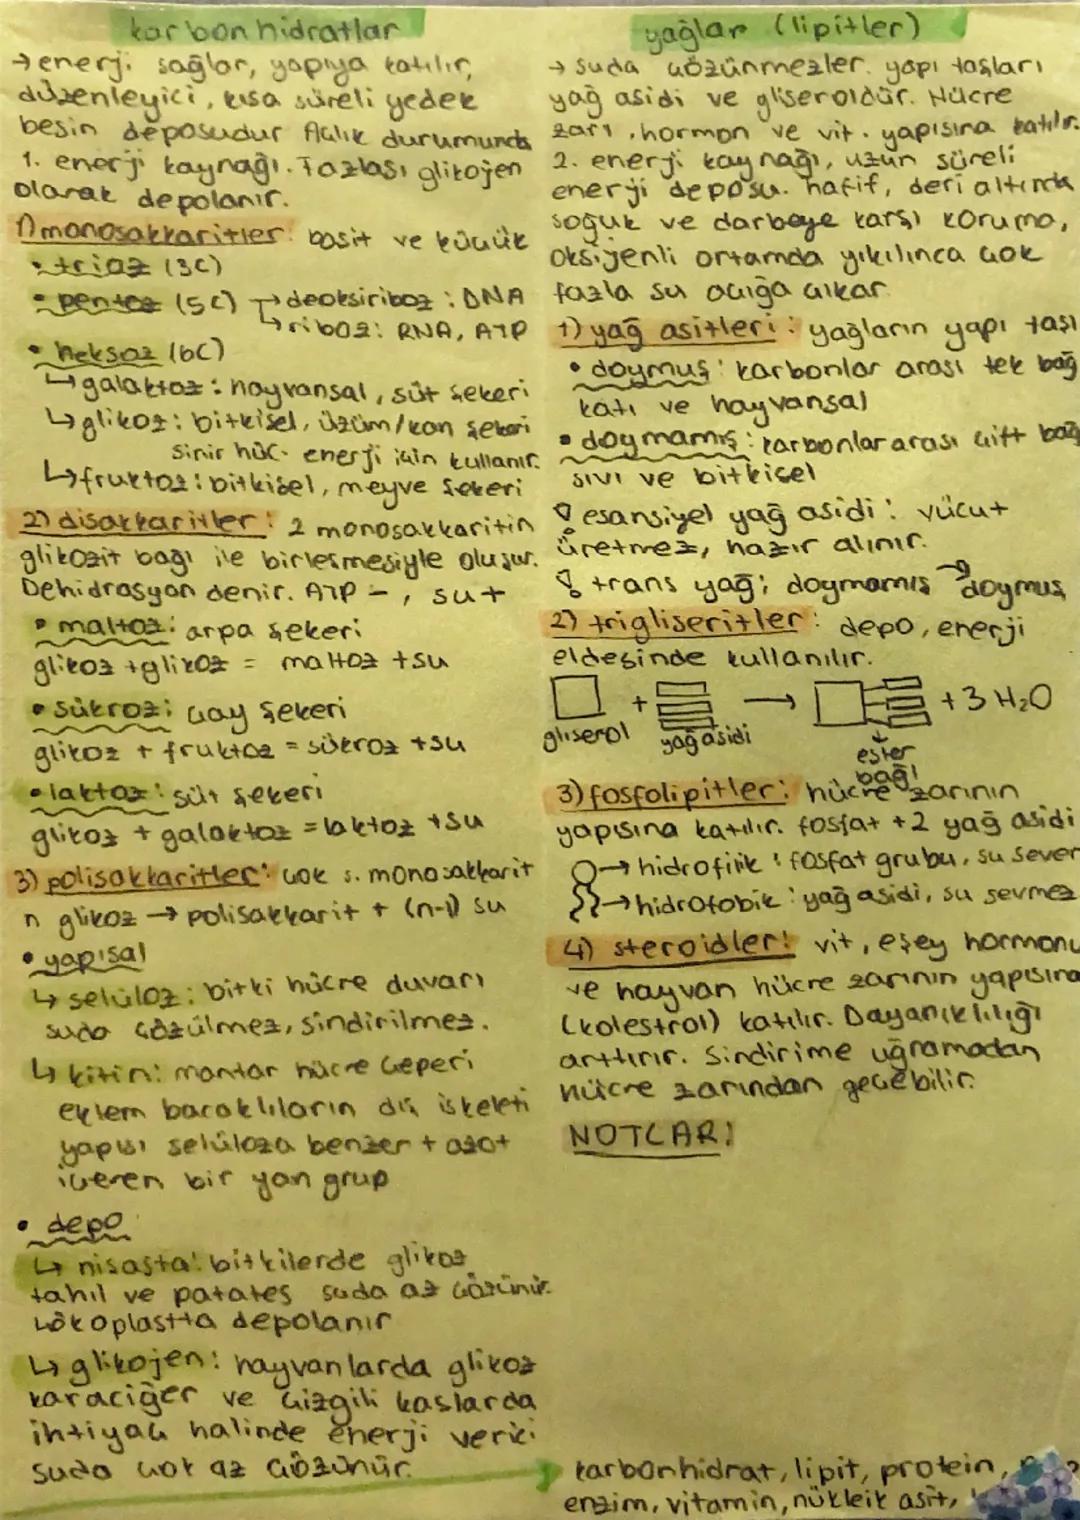 karbonhidratlar
→ enerji sağlar, yapıya katılır,
düzenleyici, kısa süreli yedek
besin deposudur Açlık durumunda
1. enerji kaynağı. Fazlası glikojen
olarak depolanır.
1) monosakkaritler: basit ve küçük
• trioz (3C)
• pentoz (5C) → deoksiriboz : DNA
↳ riboz: RNA, ATP
• heksoz (6C)
↳ galaktoz : hayvansal, süt şekeri
↳ glikoz : bitkisel, üzüm/kan şekeri
sinir hüc. enerji için kullanır.
↳ fruktoz : bitkisel, meyve şekeri
2) disakkaritler: 2 monosakkaritin
glikozit bağı ile birleşmesiyle oluşur.
Dehidrasyon denir. ATP -, su +
• maltoz: arpa şekeri
glikoz + glikoz = maltoz + su
• sükroz: çay şekeri
glikoz + fruktoz = sükroz + su
• laktoz: süt şekeri
glikoz + galaktoz = laktoz + su
3) polisakkaritler: çok s. monosakkarit
n glikoz → polisakkarit + (n-1) su
• yapısal
↳ selüloz : bitki hücre duvarı
suda çözülmez, sindirilmez.
↳ kitin: mantar hücre çeperi
eklem bacaklıların dış iskeleti
yapısı selüloza benzer + azot
içeren bir yan grup
• depo
↳ nişasta: bitkilerde glikoz
tahıl ve patates suda az çözünür.
lökoplastta depolanır
↳ glikojen: hayvanlarda glikoz
karaciğer ve çizgili kaslarda
ihtiyaç halinde enerji verici
suda çok az çözünür.
yağlar (lipitler)
→ suda çözünmezler. yapı taşları
yağ asidi ve gliseroldür. Hücre
zarı, hormon ve vit. yapısına katılır.
2. enerji kaynağı, uzun süreli
enerji deposu. hafif, deri altında
soğuk ve darbeye karşı koruma,
oksijenli ortamda yıkılınca çok
fazla su açığa çıkar
1) yağ asitleri : yağların yapı taşı
• doymuş : karbonlar arası tek bağ
katı ve hayvansal
• doymamış : karbonlar arası çift bağ
sıvı ve bitkisel
! esansiyel yağ asidi : vücut
üretmez, hazır alınır.
! trans yağ; doymamış → doymuş
2) trigliseritler : depo, enerji
eldesinde kullanılır.
+ → + 3 H₂O
gliserol yağ asidi ester
bağı
3) fosfolipitler: hücre zarının
yapısına katılır. fosfat + 2 yağ asidi
→ hidrofilik : fosfat grubu, su sever
→ hidrofobik : yağ asidi, su sevmez
4) steroidler: vit, eşey hormonu
ve hayvan hücre zarının yapısına
(kolestrol) katılır. Dayanıklılığı
arttırır. Sindirime uğramadan
hücre zarından geçebilir.
NOTLAR:
karbonhidrat, lipit, protein,
enzim, vitamin, nükleik asit,